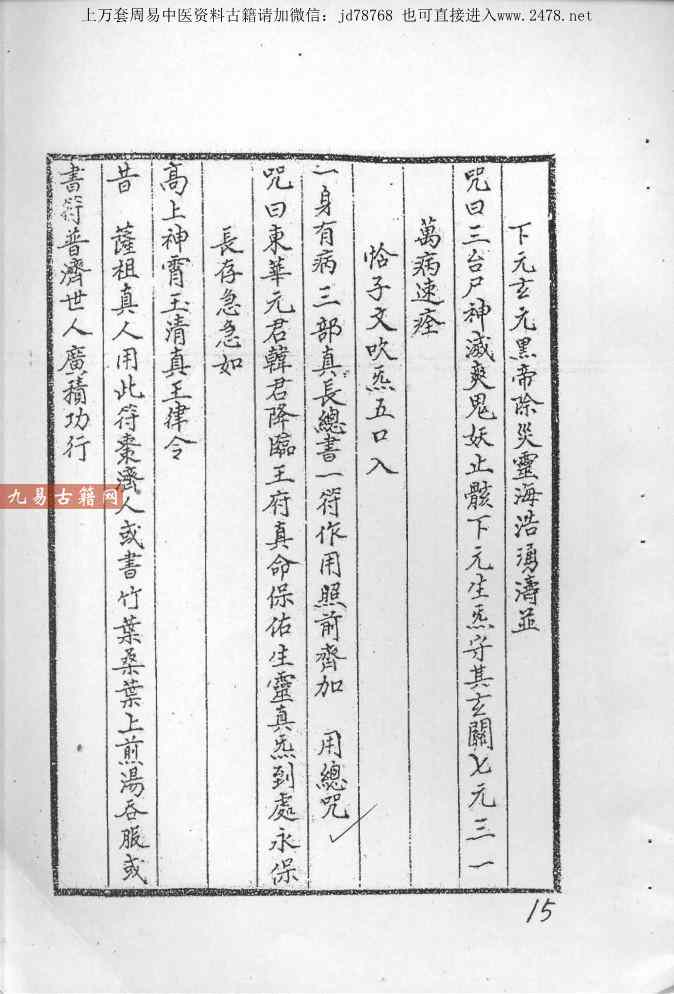 上万套周易中医资料古籍请加微信：jd78768 也可直接进入www.2478.net
下元玄元黑帝除災靈海浩湧濤並
咒曰三台尸神滅爽鬼妖止骸下元生炁守其玄關七元三一
萬病速痊
恰子文吹炁五口入
一身有病三部真長總書一符作用照前齊加 用總咒
咒曰東華元君韓君降臨王府真命保佑生靈真炁到處永保
長存急急如
高上神霄玉清真王律令
昔 薩祖真人用此符棗濟人或書竹葉桑葉上煎湯吞服或
書符普濟世人廣積功行
九易古籍网
15